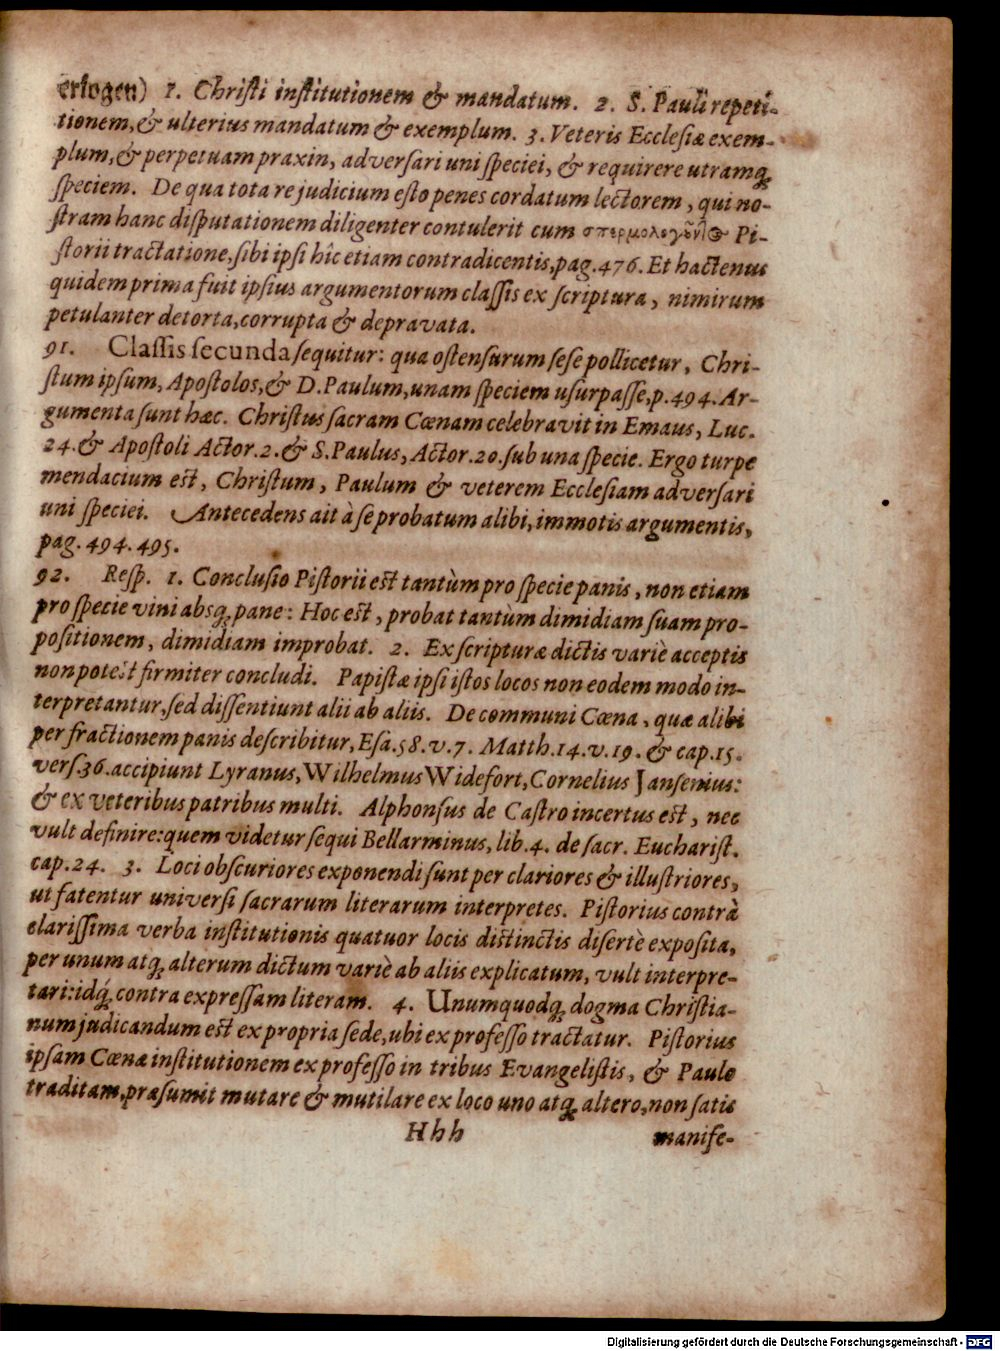 erlogen) 1. Christi institutionem & mandatum. 2. S. Pauli repeti-
tionem, & ulterius mandatum & exemplum. 3. Veteris Ecclesiæ exem-
plum, & perpetuam praxin, adversari uni speciei, & requirere utramq́;
speciem. De qua tota re judicium esto penes cordatum lectorem, qui no-
stram hanc disputationem diligenter contulerit cum Pi-
storii tractatione, sibi ipsi hîc etiam contradicentis, pag. 476. Et hactenus
quidem prima fuit ipsius argumentorum classis ex scriptura, nimirum
petulanter detorta, corrupta & depravata.
91. Classis secunda sequitur: qua ostensurum sese pollicetur, Chri-
stum ipsum, Apostolos, & D. Paulum, unam speciem usurpasse, p. 494. Ar-
gumenta sunt hæc. Christus sacram Cœnam celebravit in Emaus, Luc.
24. & Apostoli Actor. 2. & S. Paulus, Actor. 20. sub una specie. Ergo turpe
mendacium est, Christum, Paulum & veterem Ecclesiam adversari
uni speciei. Antecedens ait à se probatum alibi, immotis argumentis,
pag. 494. 495.
92. Resp. 1. Conclusio Pistorii est tantùm pro specie panis, non etiam
pro specie vini absq; pane: Hoc est, probat tantùm dimidiam suam pro-
positionem, dimidiam improbat. 2. Ex scripturæ dictis variè acceptis
non potest firmiter concludi. Papistæ ipsi istos locos non eodem modo in-
terpretantur, sed dissentiunt alii ab aliis. De communi Cœna, quæ alibi
per fractionem panis describitur, Esa. 58. v. 7. Matth. 14. v. 19. & cap. 15.
vers. 36. accipiunt Lyranus, Wilhelmus Widefort, Cornelius Jansenius:
& ex veteribus patribus multi. Alphonsus de Castro incertus est, nec
vult definire: quem videtur sequi Bellarminus, lib. 4. de sacr. Eucharist.
cap. 24. 3. Loci obscuriores exponendi sunt per clariores & illustriores,
ut fatentur universi sacrarum literarum interpretes. Pistorius contrà
clarissima verba institutionis quatuor locis distinctis disertè exposita,
per unum atq; alterum dictum variè ab aliis explicatum, vult interpre-
tari: idq́; contra expressam literam. 4. Unumquodq; dogma Christia-
num judicandum est ex propria sede, ubi ex professo tractatur. Pistorius
ipsam Cœnæ institutionem ex professo in tribus Evangelistis, & Paulo
traditam, præsumit mutare & mutilare ex loco uno atq; altero, non satis
Hhh manife-
Digitalisierung gefördert durch die Deutsche Forschungsgemeinschaft - DFG